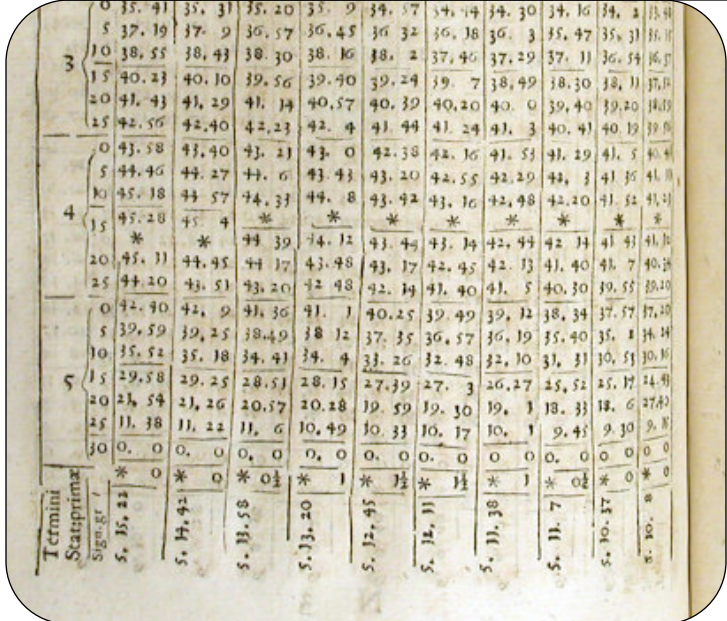 0 35. 41 35. 31 35. 20 35. 9 34. 57 34. 44 34. 30 34. 16 34. 2
5 37. 19 37. 9 36. 57 36. 45 36 32 36. 18 36. 3 35. 47 35. 31
3 10 38. 55 38. 43 38. 30 38. 16 38. 2 37. 46 37. 29 37. 11 36. 54
15 40. 23 40. 10 39. 56 39. 40 39. 24 39. 7 38, 49 38. 30 38, 11
20 41. 43 41, 29 41. 14 40, 57 40. 39 40, 20 40. 0 39, 40 39, 20
25 42. 56 42, 40 42, 23 42. 4 41. 44 41. 24 41. 3 40. 41 40. 19
0 43. 58 43, 40 43. 21 43. 0 42. 38 42. 16 41. 53 41, 29 41. 5
5 44. 46 44. 27 44. 6 43. 43 43. 20 42. 55 42. 29 42, 3 41 36
4 10 45. 18 44 57 44, 33 44. 8 43. 42 43, 16 42, 48 42. 20 41. 52
15 45. 28 45 4 * * * * * * * *
* * 44 39 44. 12 43. 44 43. 14 42, 44 42 14 41 43
20 45. 11 44, 45 44 17 43. 48 43, 17 42. 45 42. 13 41, 40 41. 7
25 44. 20 43, 51 43, 20 42 48 42. 14 41, 40 41. 5 40. 30 39. 55 39, 20
0 42. 40 42, 9 41, 36 41. 1 40. 25 39. 49 39, 12 38, 34 37. 57 37, 20
5 39, 59 39, 25 38. 49 38 12 37. 35 36, 57 36, 19 35. 40 35. 1
10 35. 52 35. 18 34. 41 34. 4 33. 26 32. 48 32, 10 31, 31 30, 53
5 15 29, 58 29. 25 28. 51 28. 15 27. 39 27. 3 26, 27 25, 52 25. 17
20 21, 54 21, 26 20. 57 20. 28 19. 59 19. 30 19, 1 18. 33 18. 6
25 11. 38 11. 22 11, 6 10, 49 10. 33 10. 17 10, 1 9. 45 9. 30
30 0. 0 0. 0 0, 0 0, 0 0. 0 0. 0 0. 0 0. 0 0 0 0 0
* 0 * 0 * 0½ * 1 * 1½ * 1½ * 1 * 0½ * 0 * 0
Termini
Stat:primæ
Sign. gr
5. 15, 22
5. 14. 42
5. 13. 58
5. 13. 20
5. 12. 45
5. 12, 11
5. 11. 38
5. 11. 7
5. 10. 37
5. 10. 8